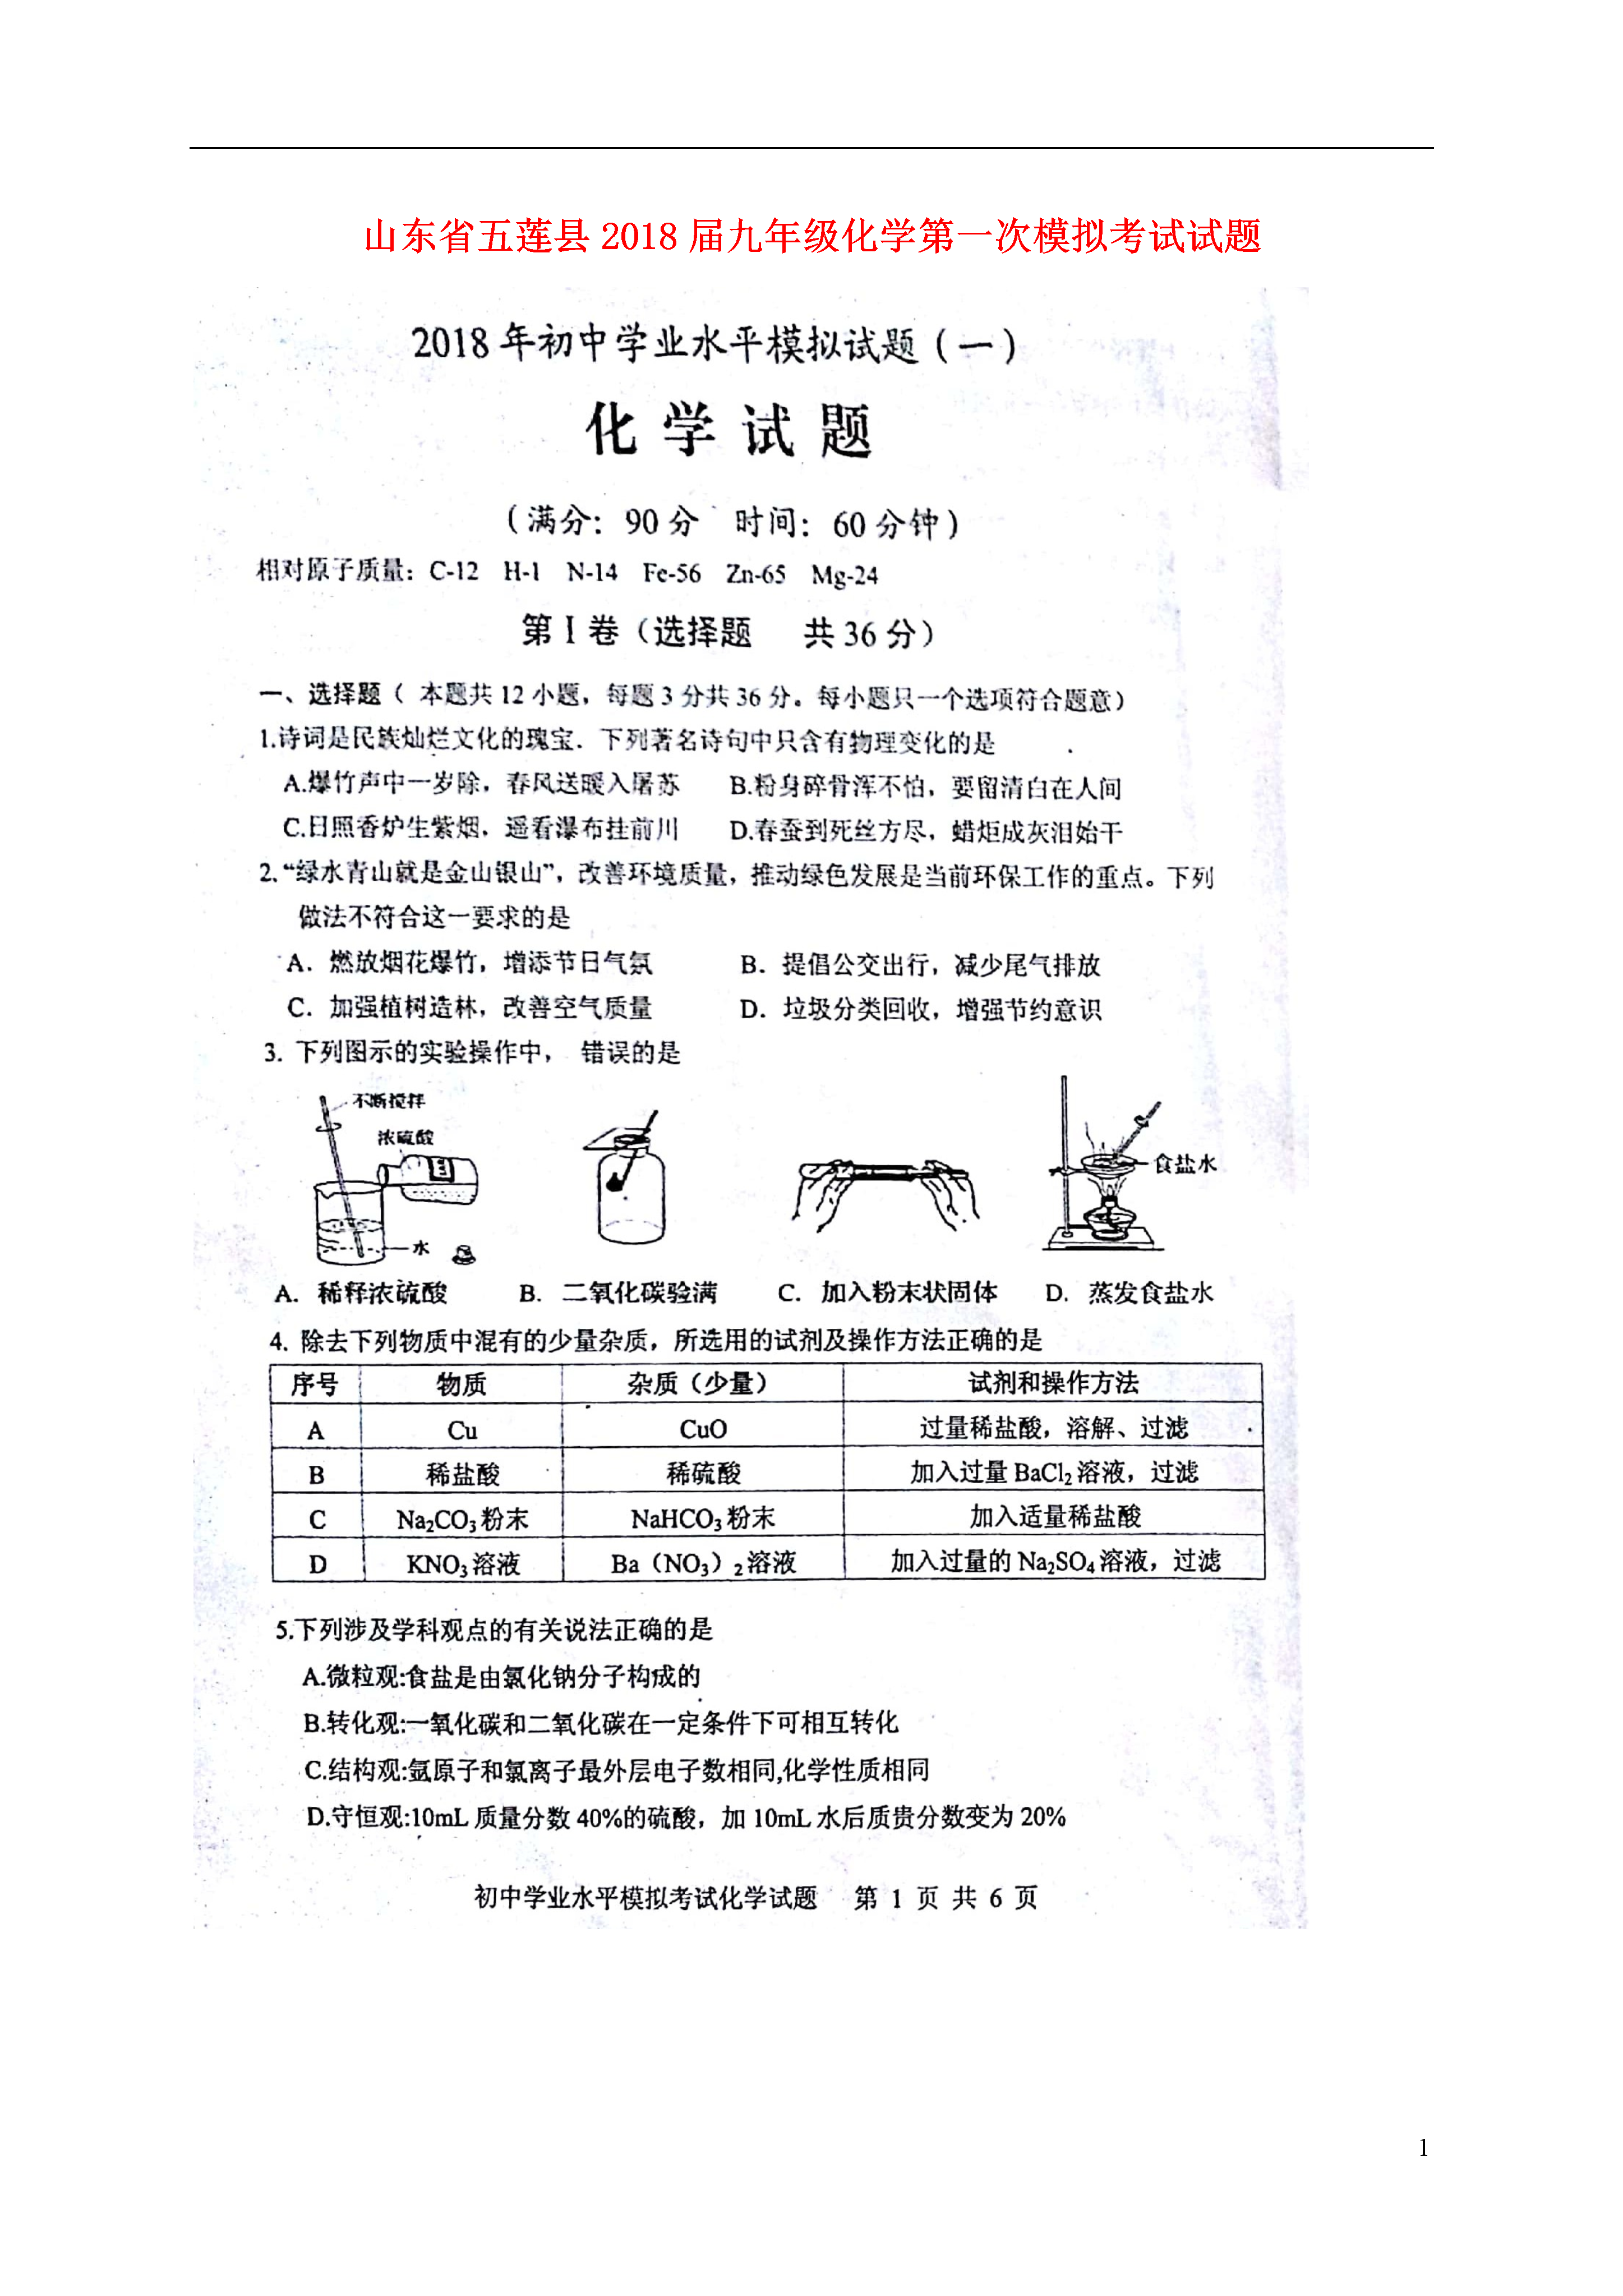 山东省五莲县 2018 届九年级化学第一次模拟考试试题
2018 年初中学业水平模拟试题（一）
化 学 试 题
（满分：90 分 时间：60 分钟）
相对原子质量：C-12 H-1 N-14 Fe-56 Zn-65 Mg-24
第 I 卷（选择题 共 36 分）
一、选择题（ 本题共 12 小题，每题 3 分共 36 分。每小题只一个选项符合题意）
1.诗词是民族灿烂文化的瑰宝．下列著名诗句中只含有物理变化的是
A.爆竹声中一岁除，春风送暖入屠苏 B.粉身碎骨浑不怕，要留清白在人间
C.日照香炉生紫烟，遥看瀑布挂前川 D.春蚕到死丝方尽，蜡炬成灰泪始干
2.“绿水青山就是金山银山”，改善环境质量，推动绿色发展是当前环保工作的重点。下列
做法不符合这一要求的是
A．燃放烟花爆竹，增添节日气氛 B．提倡公交出行，减少尾气排放
C．加强植树造林，改善空气质量 D．垃圾分类回收，增强节约意识
3. 下列图示的实验操作中， 错误的是
不断搅拌
浓硫酸
食盐水
水
A．稀释浓硫酸 B．二氧化碳验满 C．加入粉末状固体 D．蒸发食盐水
4. 除去下列物质中混有的少量杂质，所选用的试剂及操作方法正确的是
序号 物质 杂质（少量） 试剂和操作方法
A Cu CuO 过量稀盐酸，溶解、过滤
B 稀盐酸 稀硫酸 加入过量 BaCl₂ 溶液，过滤
C Na₂CO₃ 粉末 NaHCO₃ 粉末 加入适量稀盐酸
D KNO₃ 溶液 Ba（NO₃）₂ 溶液 加入过量的 Na₂SO₄ 溶液，过滤
5.下列涉及学科观点的有关说法正确的是
A.微粒观:食盐是由氯化钠分子构成的
B.转化观:一氧化碳和二氧化碳在一定条件下可相互转化
C.结构观:氩原子和氯离子最外层电子数相同,化学性质相同
D.守恒观:10mL 质量分数 40%的硫酸，加 10mL 水后质贵分数变为 20%
初中学业水平模拟考试化学试题 第 1 页 共 6 页
1